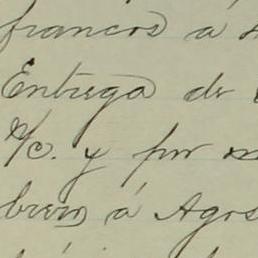 francos á
Entrega de
S/C. y por
brero á Agos